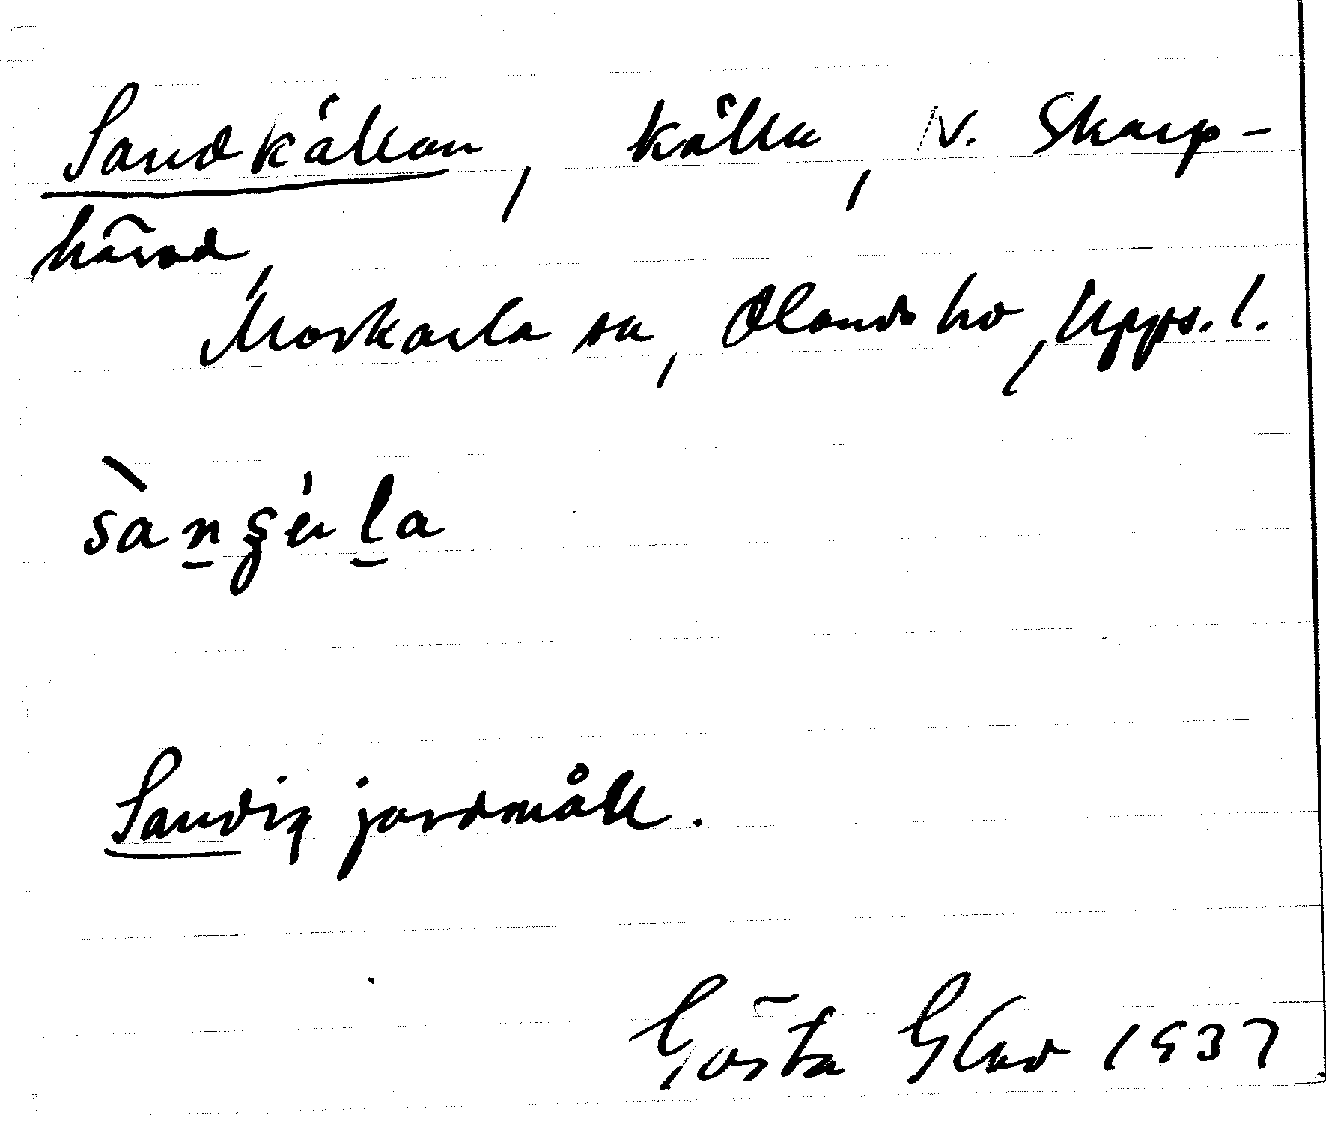 Sandkällan, källa, N. Skarp-
härad,
Morkarla sn, Olands hd, Upps. l.
Sandig jordmån.
Gösta Glad 1937